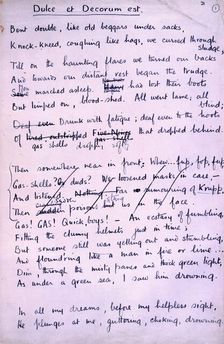 Dulce et Decorum est.
1
Bent double, like old beggars under sacks,
Knock-kneed, coughing like hags, we cursed through
sludge,
Till on the haunting flares we turned our backs
And towards our distant rest began the trudge.
marched asleep. Many has lost their boots
But limped on, blood-shod. All went lame, all
blind;
Drunk with fatigue; deaf even to the hoots
Of that dropped behind.
gas shells dropping softly
Then somewhere near in front; Whew... fup, fop, fup,
Gas-shells? Or duds? We loosened masks, in case, —
And listened. Nothing. Far rumouring of Krupp.
Then poison hit us in the face.
Gas! GAS! Quick, boys! — An ecstasy of fumbling,
Fitting the clumsy helmets just in time;
But someone still was yelling out and stumbling,
And flound'ring like a man in fire or lime...
Dim, through the misty panes and thick green light,
As under a green sea, I saw him drowning.
In all my dreams, before my helpless sight,
He plunges at me, guttering, choking, drowning.